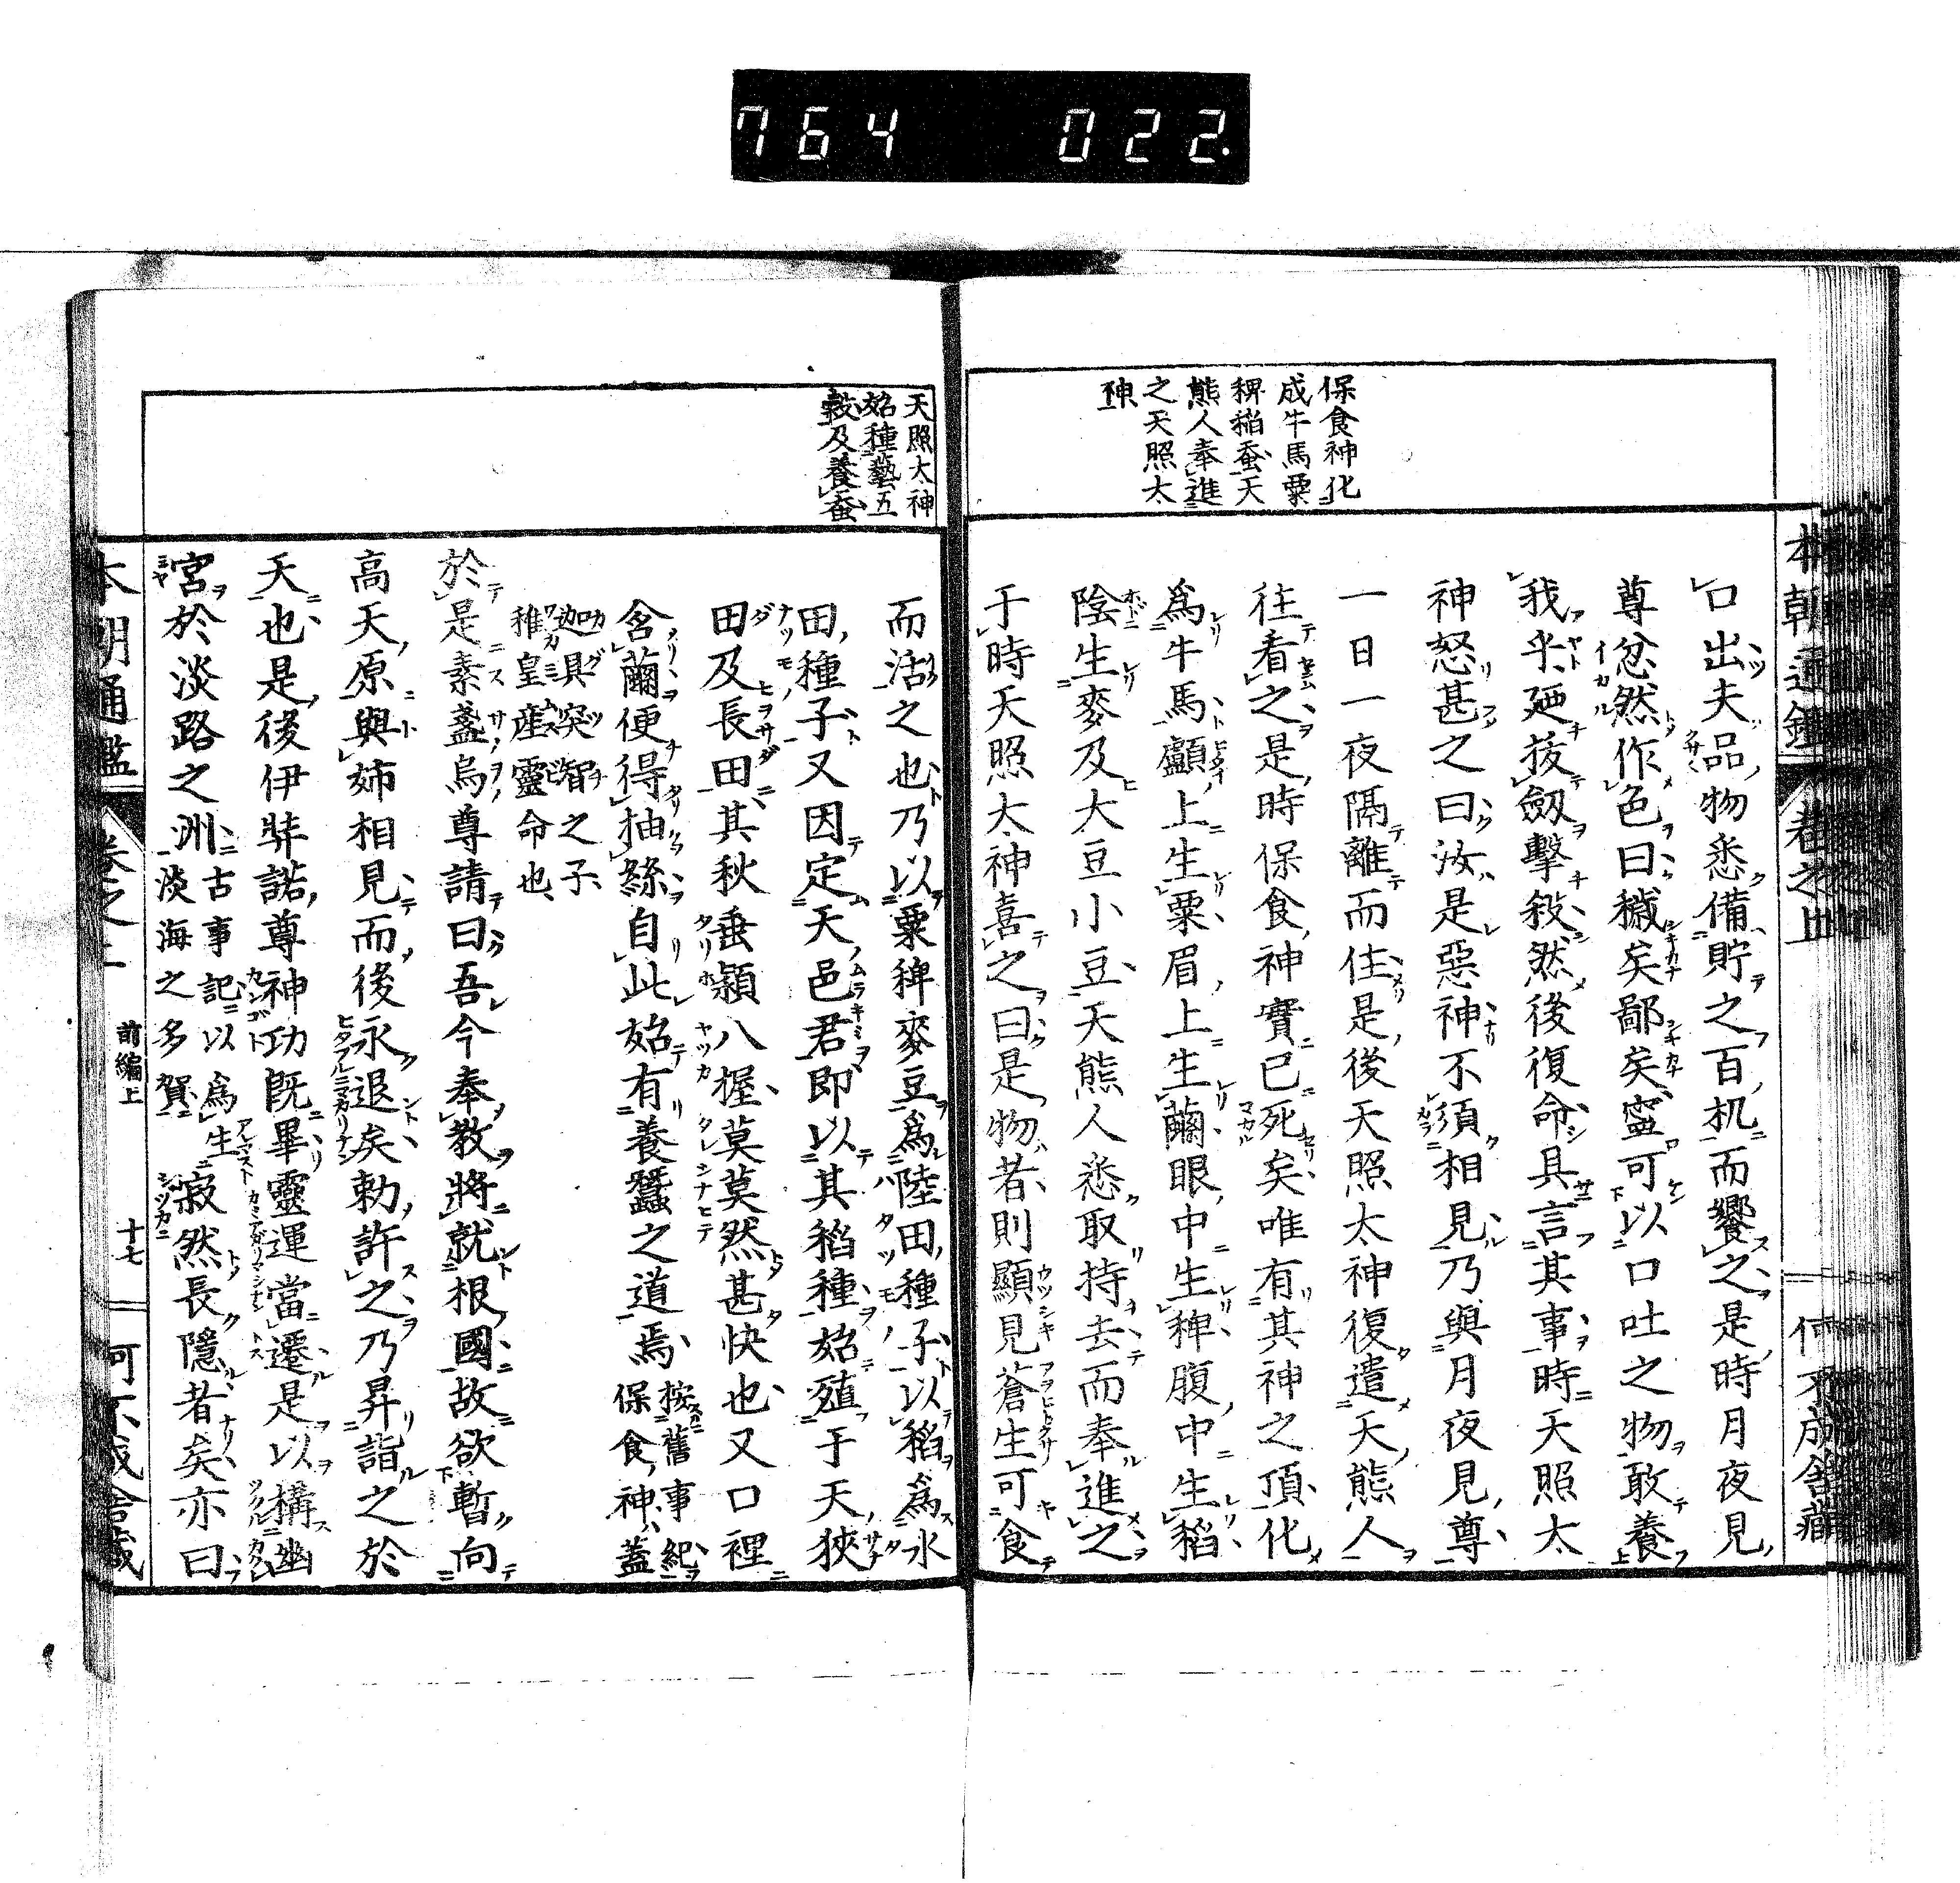 764 022.
保食神化
成牛馬粟
稗稲蚕天
熊人奉進
之天照太
神
本朝通鑑 巻之
口出夫品物悉備貯之百机而饗之是時月夜見
尊忿然作色曰穢矣鄙矣寧可以口吐之物敢養
我乎廼拔劔擊殺然後復命具言其事時天照太
神怒甚之曰汝是惡神不須相見乃與月夜見尊
一日一夜隔離而住是後天照太神復遣天熊人
往看之是時保食神實已死矣唯有其神之頂化
爲牛馬顱上生粟眉上生繭眼中生稗腹中生稻
陰生麥及大豆小豆天熊人悉取持去而奉進之
于時天照大神喜之曰是物者則顯見蒼生可食
天照太神
始種藝五
穀及養蚕
而活之也乃以粟稗麥豆爲陸田種子以稻爲水
田種子又因定天邑君即以其稻種始殖于天狹
田及長田其秋垂穎八握莫莫然甚快也又口裡
含繭便得抽絲自此始有養蠶之道焉 按舊事紀
保食神蓋
迦具突智之子
稚皇産靈命也
於是素盞烏尊請曰吾今奉教將就根國故欲暫向
高天原與姉相見而後永退矣勅許之乃昇詣之於
天也是後伊弉諾尊神功既畢靈運當遷是以構幽
宮於淡路之洲 古事記以爲生
淡海之多賀 寂然長隱者矣亦曰
本朝通鑑 巻之
前編上
十七
何不成舎蔵